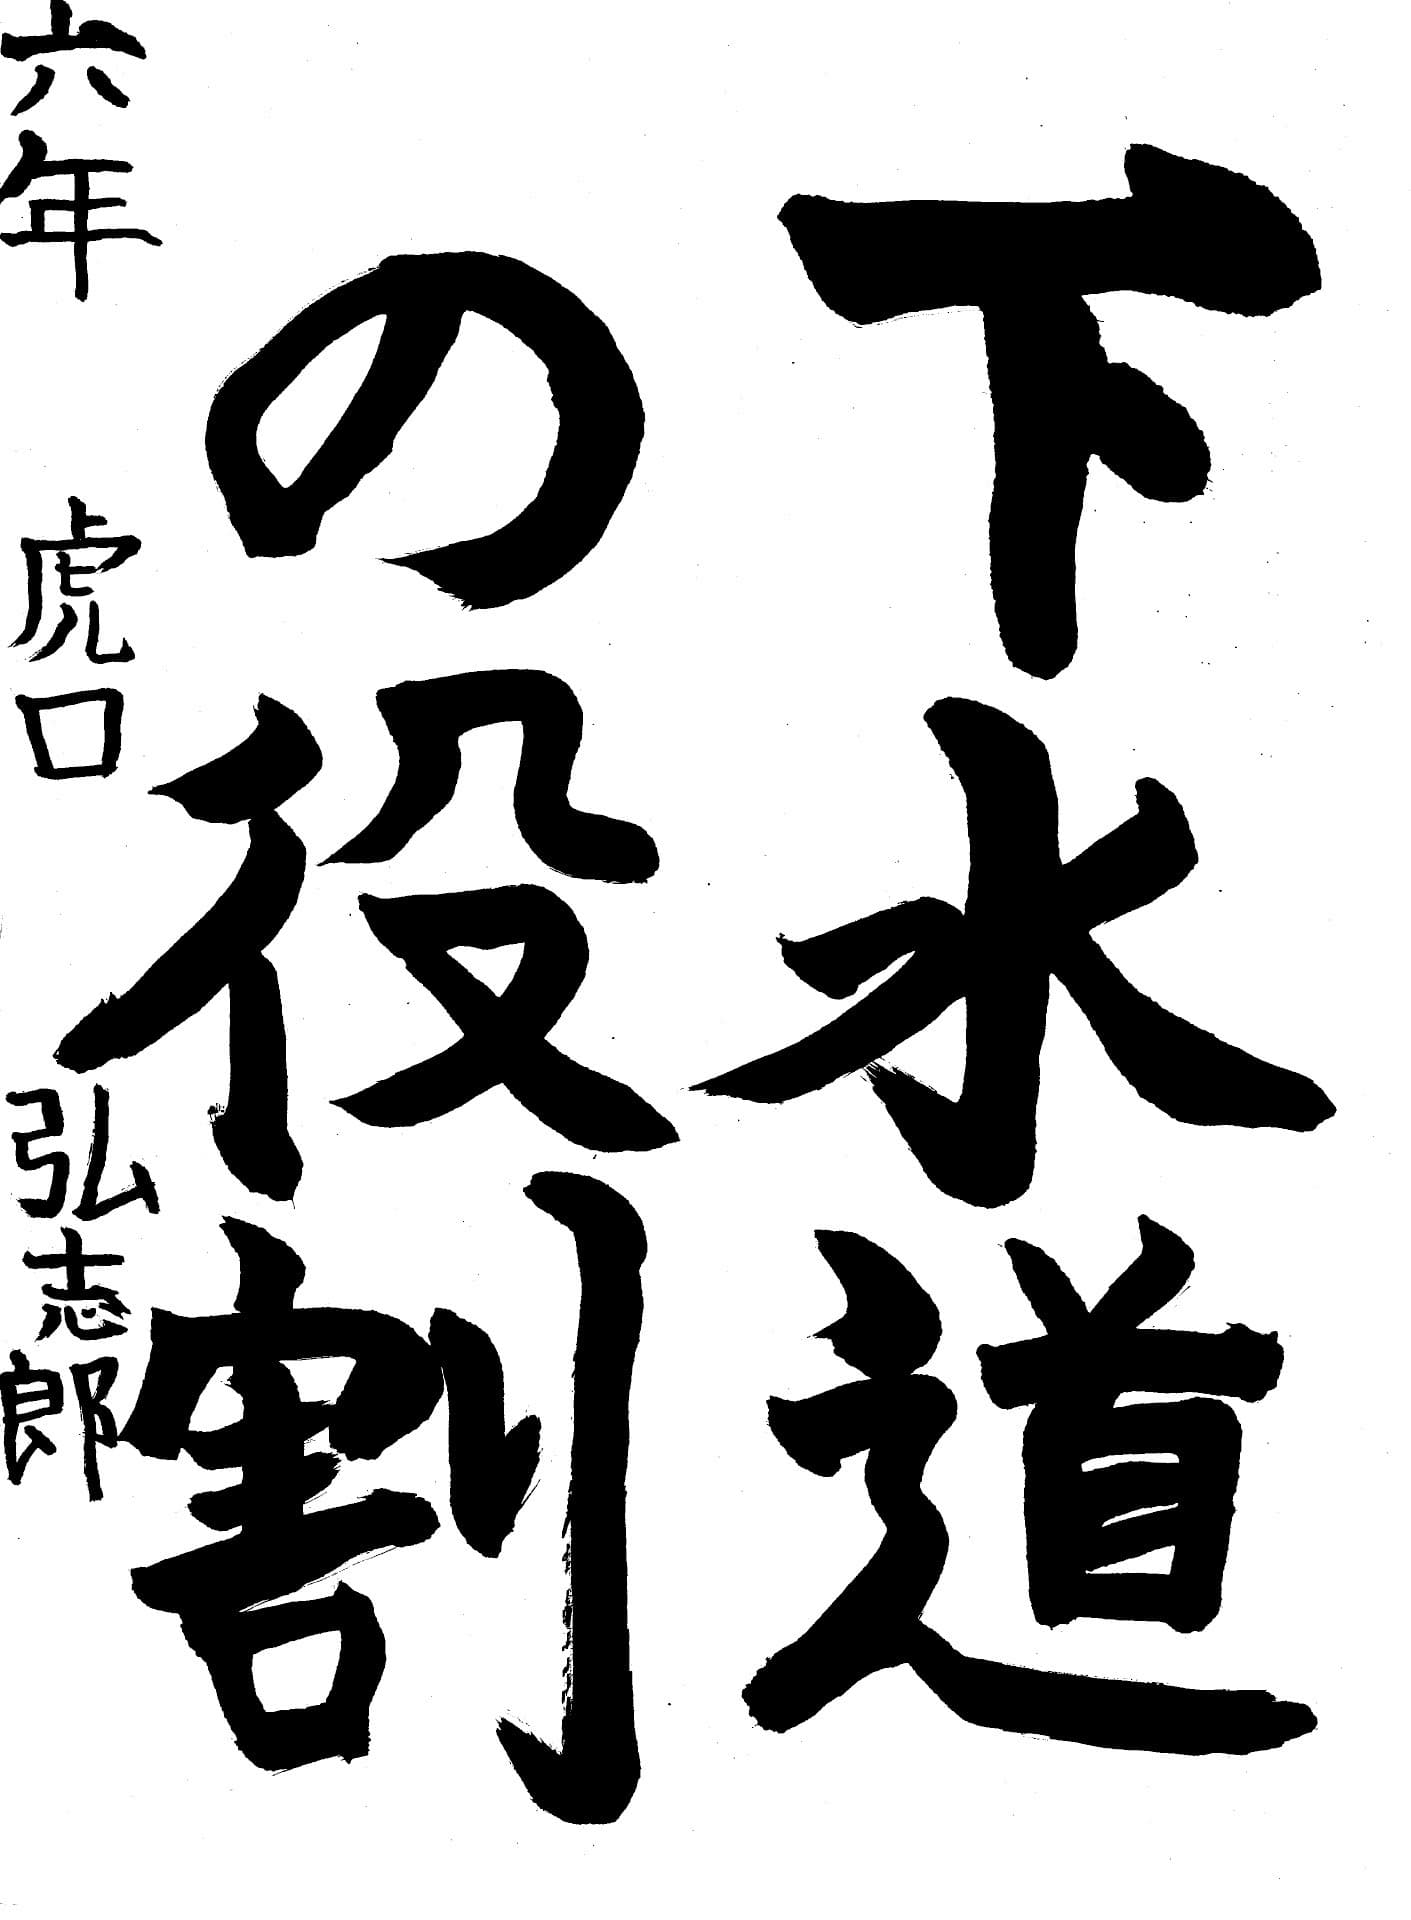 下水道
の役割
六年 虎口 弘志郎